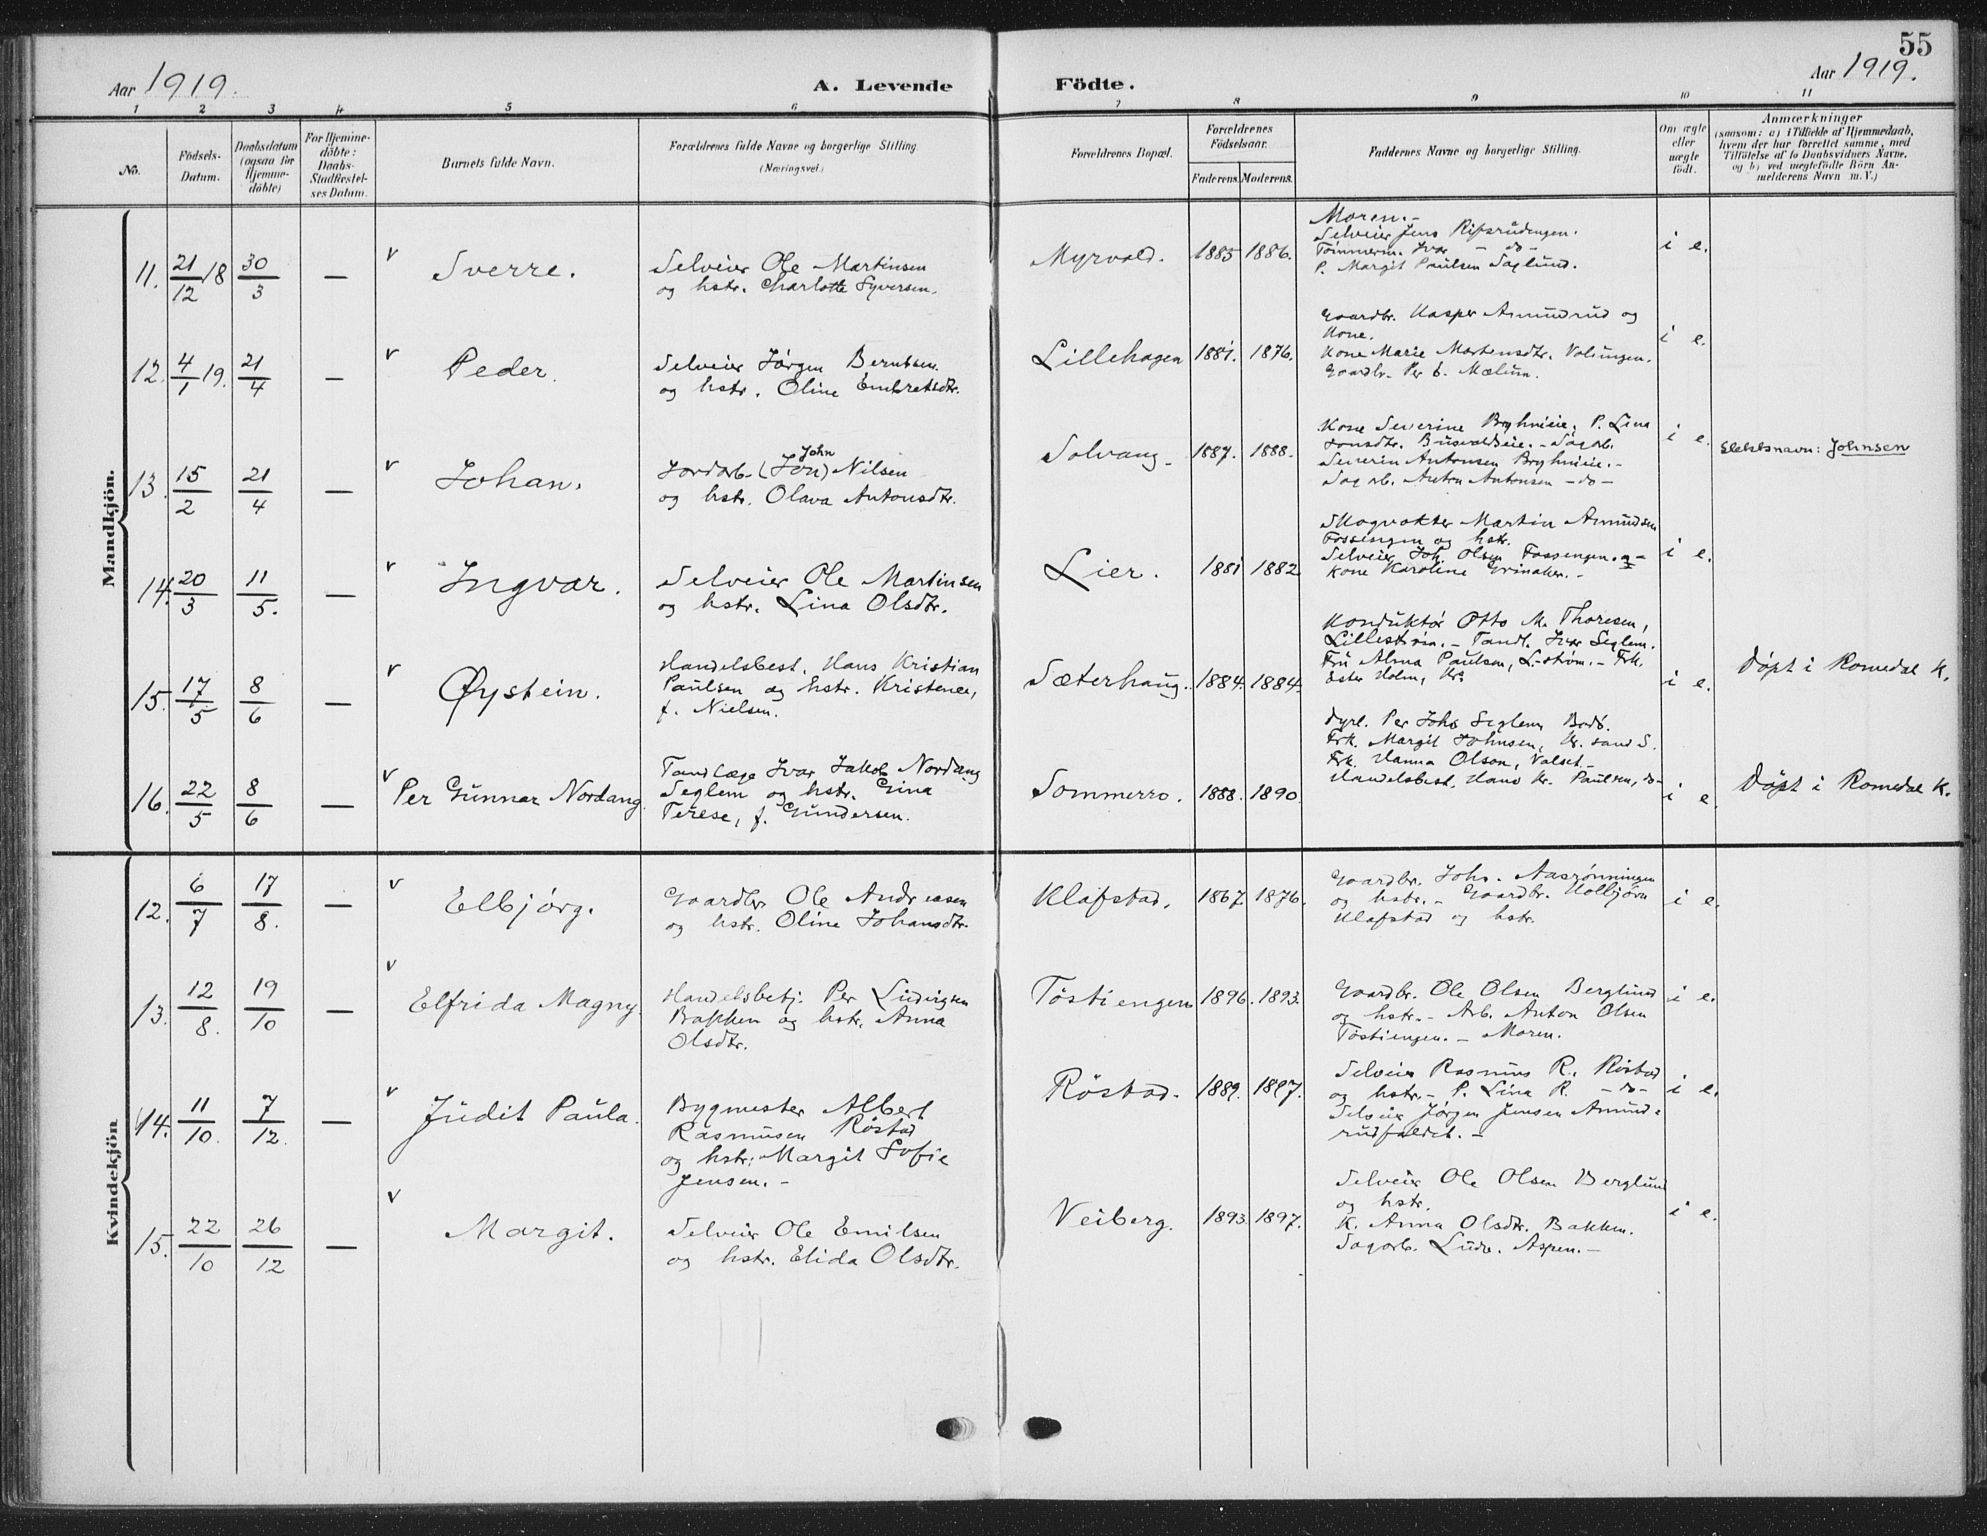 55
Aar 1919.
A. Levende Födte.
Aar 1919.
1 2 3 4 5 6 7 8 9 10 11
No.
Födsels-
Datum.
Daabsdatum
(ogsaa for
Hjemme-
döbte)
For Hjemme-
döbte:
Daabs-
Stadfæstel-
ses Datum.
Barnets fulde Navn.
Forældrenes fulde Navne og borgerlige Stilling
(Næringsvei.)
Forældrenes Bopæl.
Forældrenes
Födselsaar.
Faderens. Moderens.
Faddernes Navne og borgerlige Stilling.
Om ægte
eller
uægte
födt.
Anmærkninger
(saasom: a) i Tilfælde af Hjemmedaab,
hvem der har forrettet samme, med
Tilföielse af to Daabsvidners Navne,
og b) ved uægtefödte Börn An-
melderens Navn m. V.)
Mandkjön.
11. 21/12 18 30/3 — v Sverre.
Selveier Ole Martinsen
og hstr. Charlotte Syversen.
Myrvold. 1885 1886.
Moren.-
Selveier Jens Ripsrudengen.
Tømmerm. Ivar — do —
P. Margit Paulsen Saglund.
i e.
12. 4/1 19. 21/4 — v Peder.
Selveier Jørgen Berntsen
og hstr. Oline Embretsdtr.
Lillehagen 1881. 1876.
Gaardbr. Kasper Amundrud og
Kone.
Kone Marie Martensdtr. Valungen.
Gaardbr. Per E. Mælum.
i e.
13. 15/2 21/4 — v Johan.
John
Jordarb. (Jon) Nilsen
og hstr. Olava Antonsdtr.
Solvang. 1887. 1888.
Kone Severine Bryhnieie. P. Lina
Jonsdtr. Busvoldeie. - Sagarb.
Severin Antonsen Bryhnieie. -
Sagarb. Anton Antonsen — do —
i e.
Slektsnavn: Johnsen
14. 20/3 11/5. — v Ingvar.
Selveier Ole Martinsen
og hstr. Lina Olsdtr.
Lier. 1881 1882
Skogvokter Martin Amundsen
Fossengen og hstr.
Selveier Joh. Olsen Fossengen. og
Kone Karoline Grinaker. -
i e.
15. 17/5 8/6 — v Øystein.
Handelsbest. Hans Kristian
Paulsen og hstr. Kristence,
f. Nielsen.
Sæterhaug. 1884. 1884.
Konduktør Otto M. Thoresen,
Lillestrøm. - Tandl. Ivar Seglem.
Fru Alma Paulsen, L-strøm. - Frk.
Ester Holm, Kr.
i e.
Døpt i Romedal K.
16. 22/5 8/6 — v Per Gunnar Nordang.
Tandlæge Ivar Jakob Nordang
Seglem og hstr. Gina
Terese, f. Gundersen.
Sommerro. 1888. 1890.
Dyrl. Per Johs Seglem Bodø.
Frk. Margit Johnsen, Kr. sand S.
Frk. Hanna Olson, Valset -
Handelsbest. Hans Kr. Paulsen, do-
i e.
Døpt i Romedal K.
Kvindekjön
12. 6/7 17/8. — v Elbjørg.
Gaardbr. Ole Andreasen
og hstr. Oline Johansdtr.
Klafstad. 1867. 1876.
Gaardbr. Johs. Aasrønningen
og hstr. - Gaardbr. Kolbjørn
Klafstad og hstr.
i e.
13. 12/8. 19/10 — v Elfrida Magny.
Handelsbetj. Per Ludvigsen
Bakken og hstr. Anna
Olsdtr.
Tostiengen 1896. 1893.
Gaardbr. Ole Olsen Berglund
og hstr. - Arb. Anton Olsen
Tostiengen. - Moren.
i e.
14. 11/10. 7/12. — v Judit Paula.
Bygmester Albert
Rasmusen Røstad
og hstr. Margit Sofie
Jensen. -
Röstad. 1889. 1897.
Selveier Rasmus R. Röstad
og hstr. - P. Lina R. — do —
Selveier Jørgen Jensen Amund-
rudfaldet. -
i e.
15. 22/10 26/12 — v Margit.
Selveier Ole Emilsen
og hstr. Elida Olsdtr.
Veiberg. 1893. 1897.
Selveier Ole Olsen Berglund
og hstr.
K. Anna Olsdtr. Bakken.
Sagarb. Ludv. Aspen. -
i e.